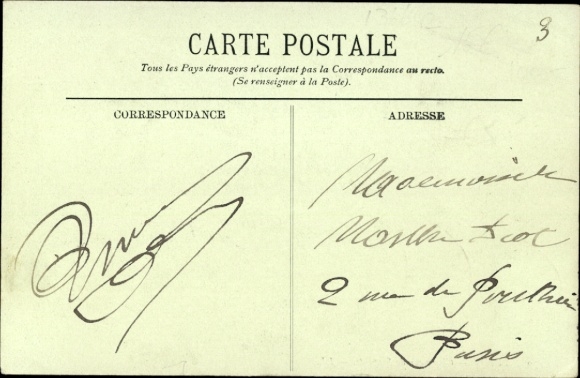 3
CARTE POSTALE
Tous les Pays étrangers n'acceptent pas la Correspondance au recto.
(Se renseigner à la Poste).
CORRESPONDANCE
ADRESSE
Mademoiselle
2 rue de
Paris